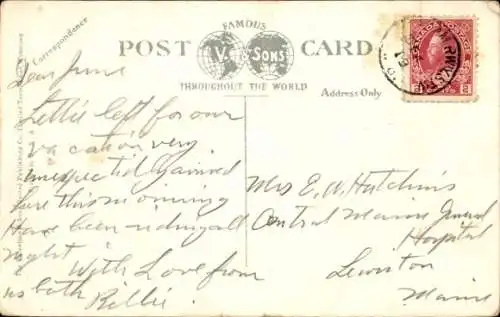 FAMOUS
POST CARD
V. & SONS
THROUGHOUT THE WORLD
Correspondence
Address Only
CANADA POSTAGE
2 2
Dear June
Lettie left for our
vacation very
unexpectedly arrived
here this morning
Have been riding all
night With Love from
us both Billie
Mrs E. W. Hutchins
Central Maine General
Hospital
Lewiston
Maine